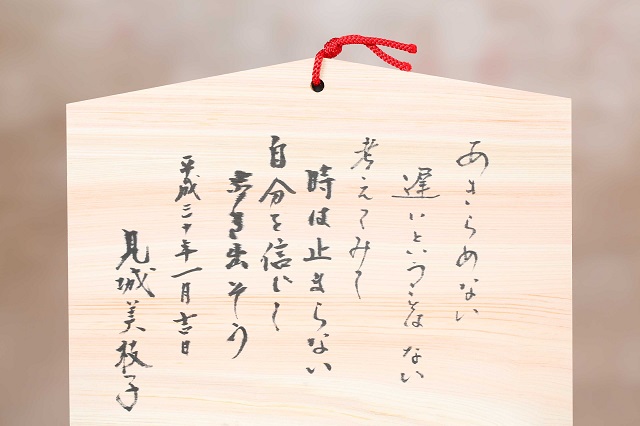 あきらめない
遅いということはない
考えてみて
時は止まらない
自分を信じて
歩き出そう
平成三十年一月吉日
見城美枝子